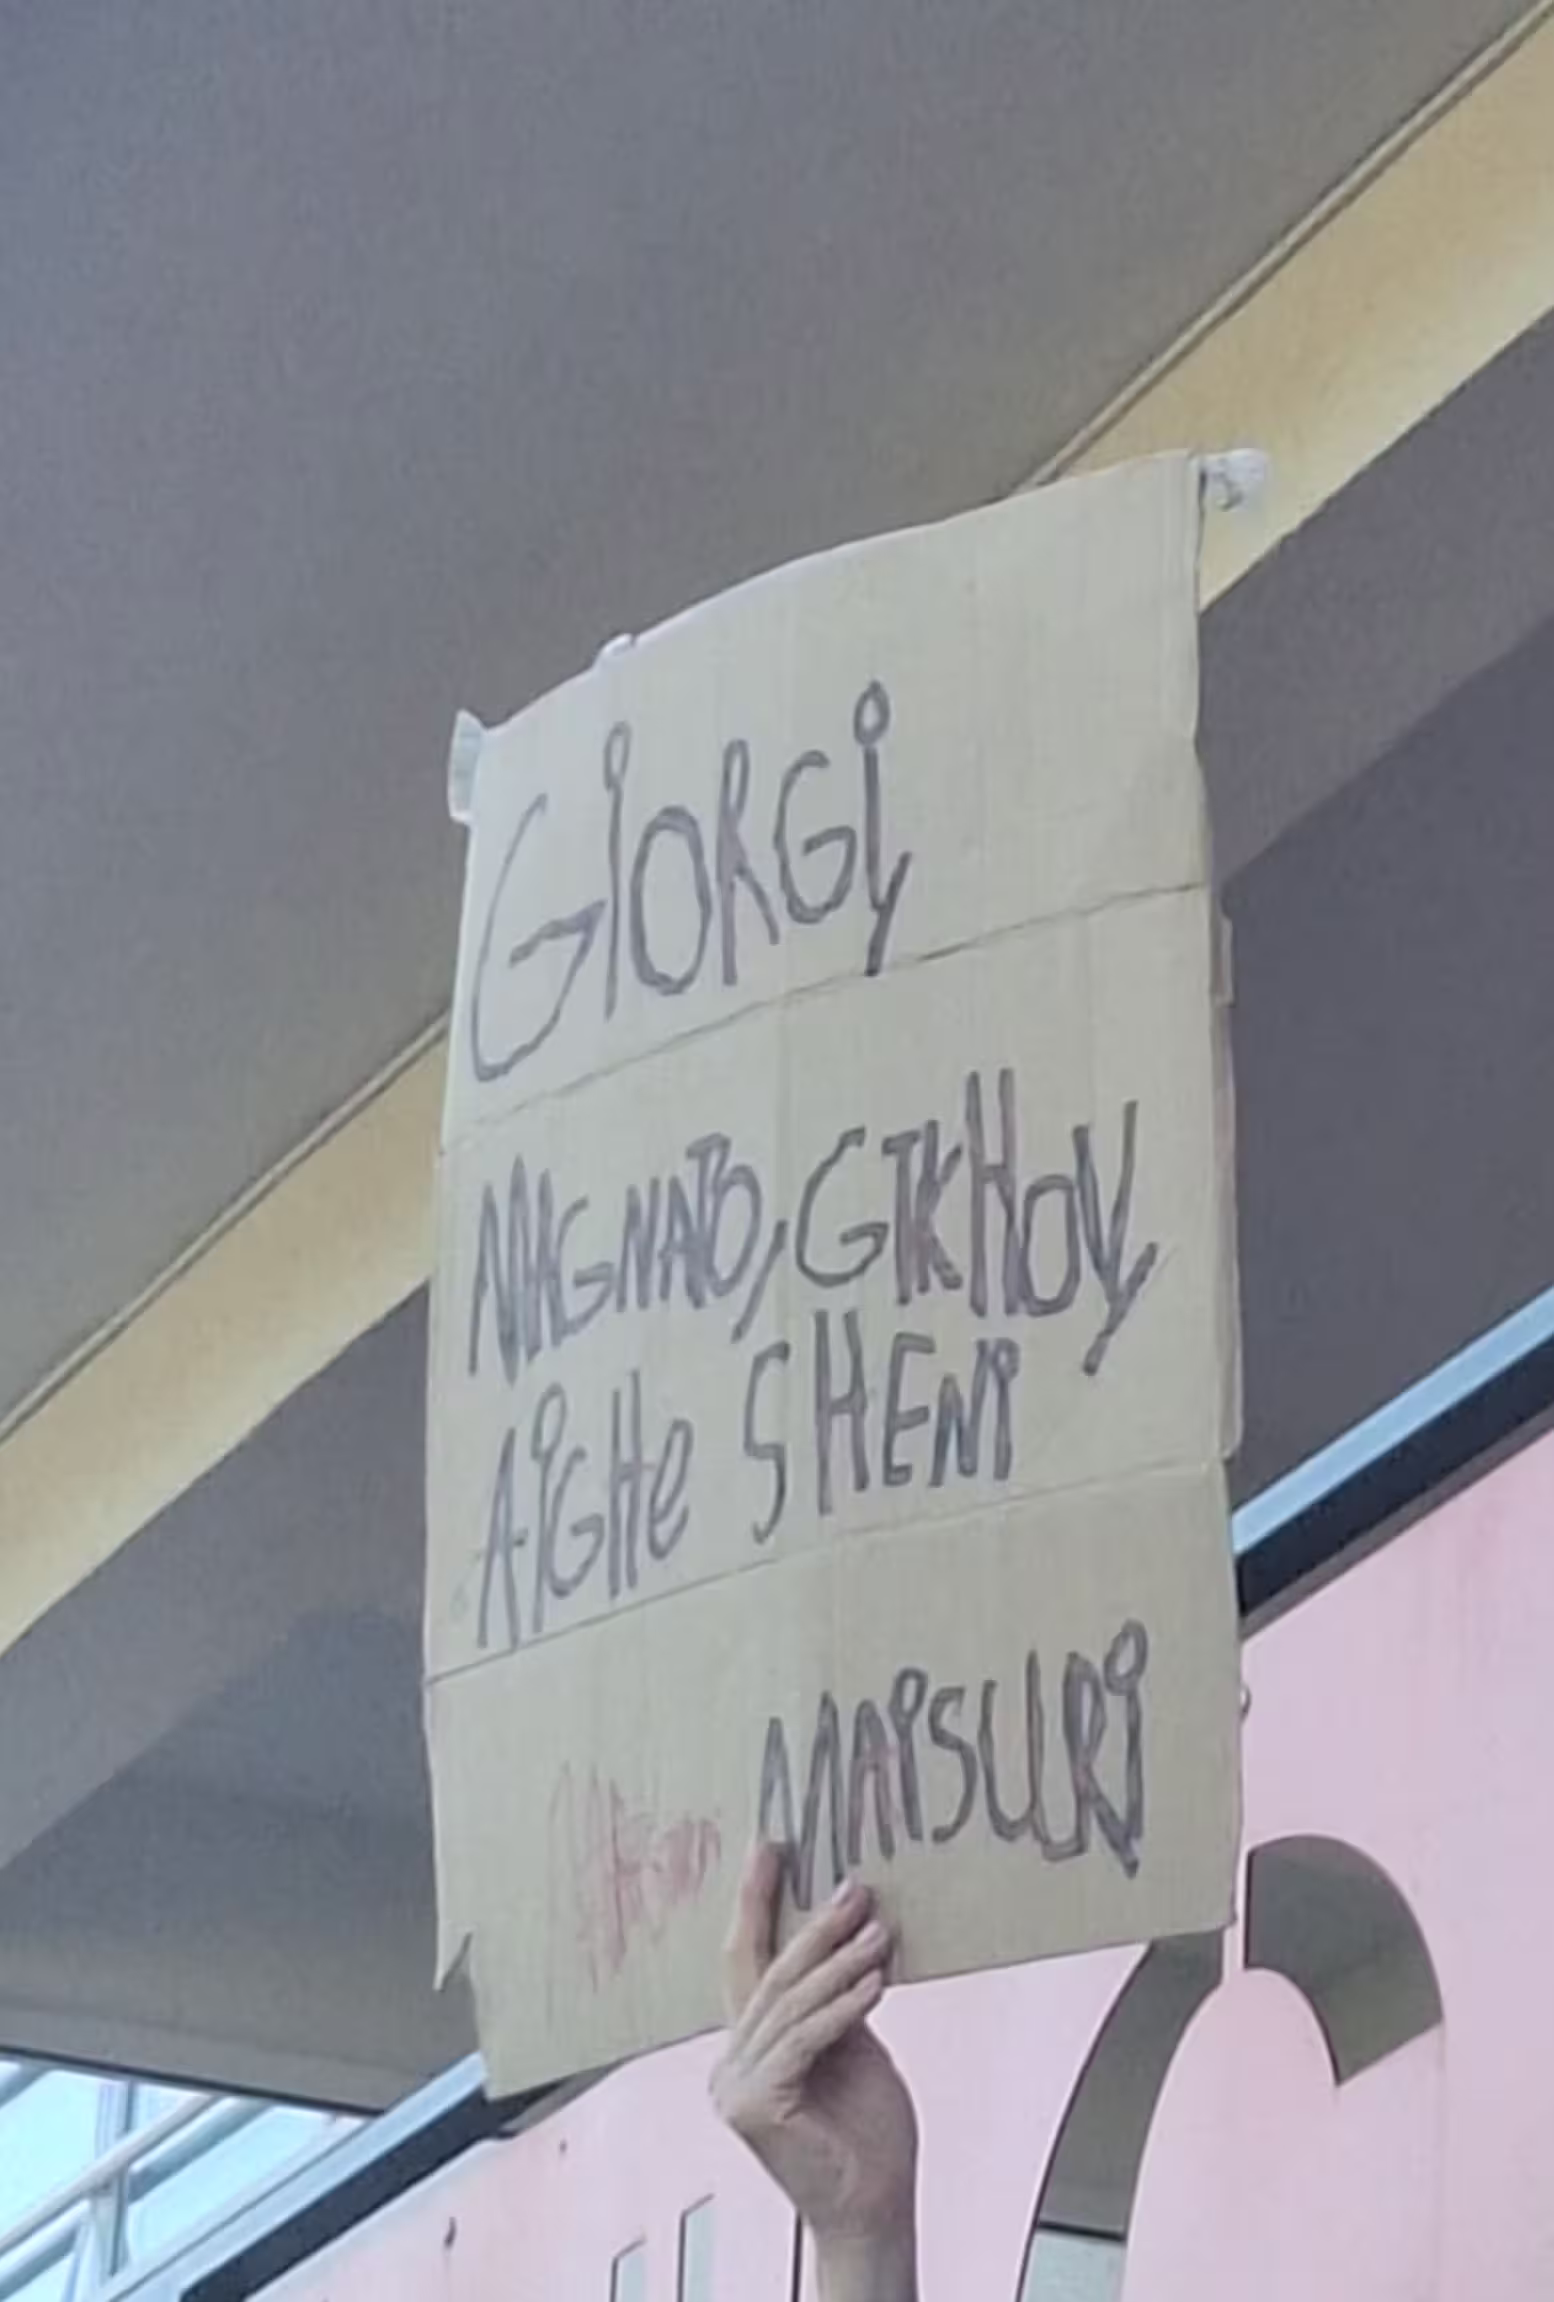 GIORGI,
MAGNATO, GTKHOV,
AIGHe SHENI
MAISURI